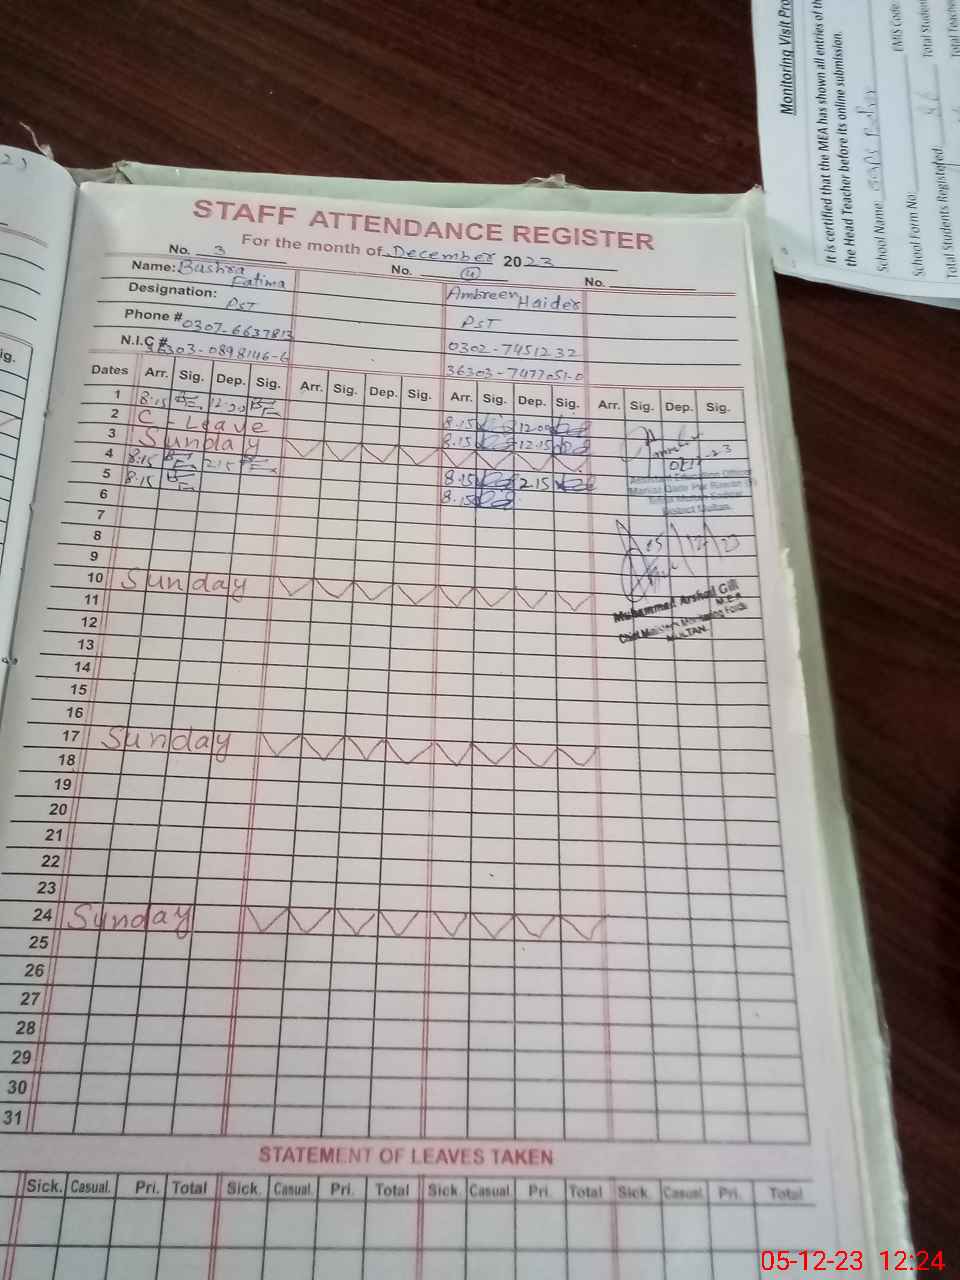 STAFF ATTENDANCE REGISTER
For the month of December 2023
No. 3 No. (4) No.
Name: Bushra Fatima Ambreen Haider
Designation: PST PST
Phone # 0307-6637813 0302-7451232
N.I.C # 36303-0898146-6 36303-7477051-0
Dates Arr. Sig. Dep. Sig. Arr. Sig. Dep. Sig. Arr. Sig. Dep. Sig. Arr. Sig. Dep. Sig.
1 8.15 12.00 8.15 12.00
2 C-Leave 8.15 12.15
3 Sunday
4 8.15 2.15 8.15 2.15
5 8.15 8.15
6
7
8
9
10 Sunday
11
12
13
14
15
16
17 Sunday
18
19
20
21
22
23
24 Sunday
25
26
27
28
29
30
31
05/12/23
Muhammad Arshad Gill
M.E.A
Chief Ministers Monitoring Force
MULTAN
STATEMENT OF LEAVES TAKEN
Sick. Casual. Pri. Total Sick. Casual. Pri. Total Sick. Casual. Pri. Total Sick. Casual. Pri. Total
Monitoring Visit
It is certified that the MEA has shown all entries of
the Head Teacher before its online submission.
School Name EMIS Code
School Form No
Total Students Registered
05-12-23 12:24